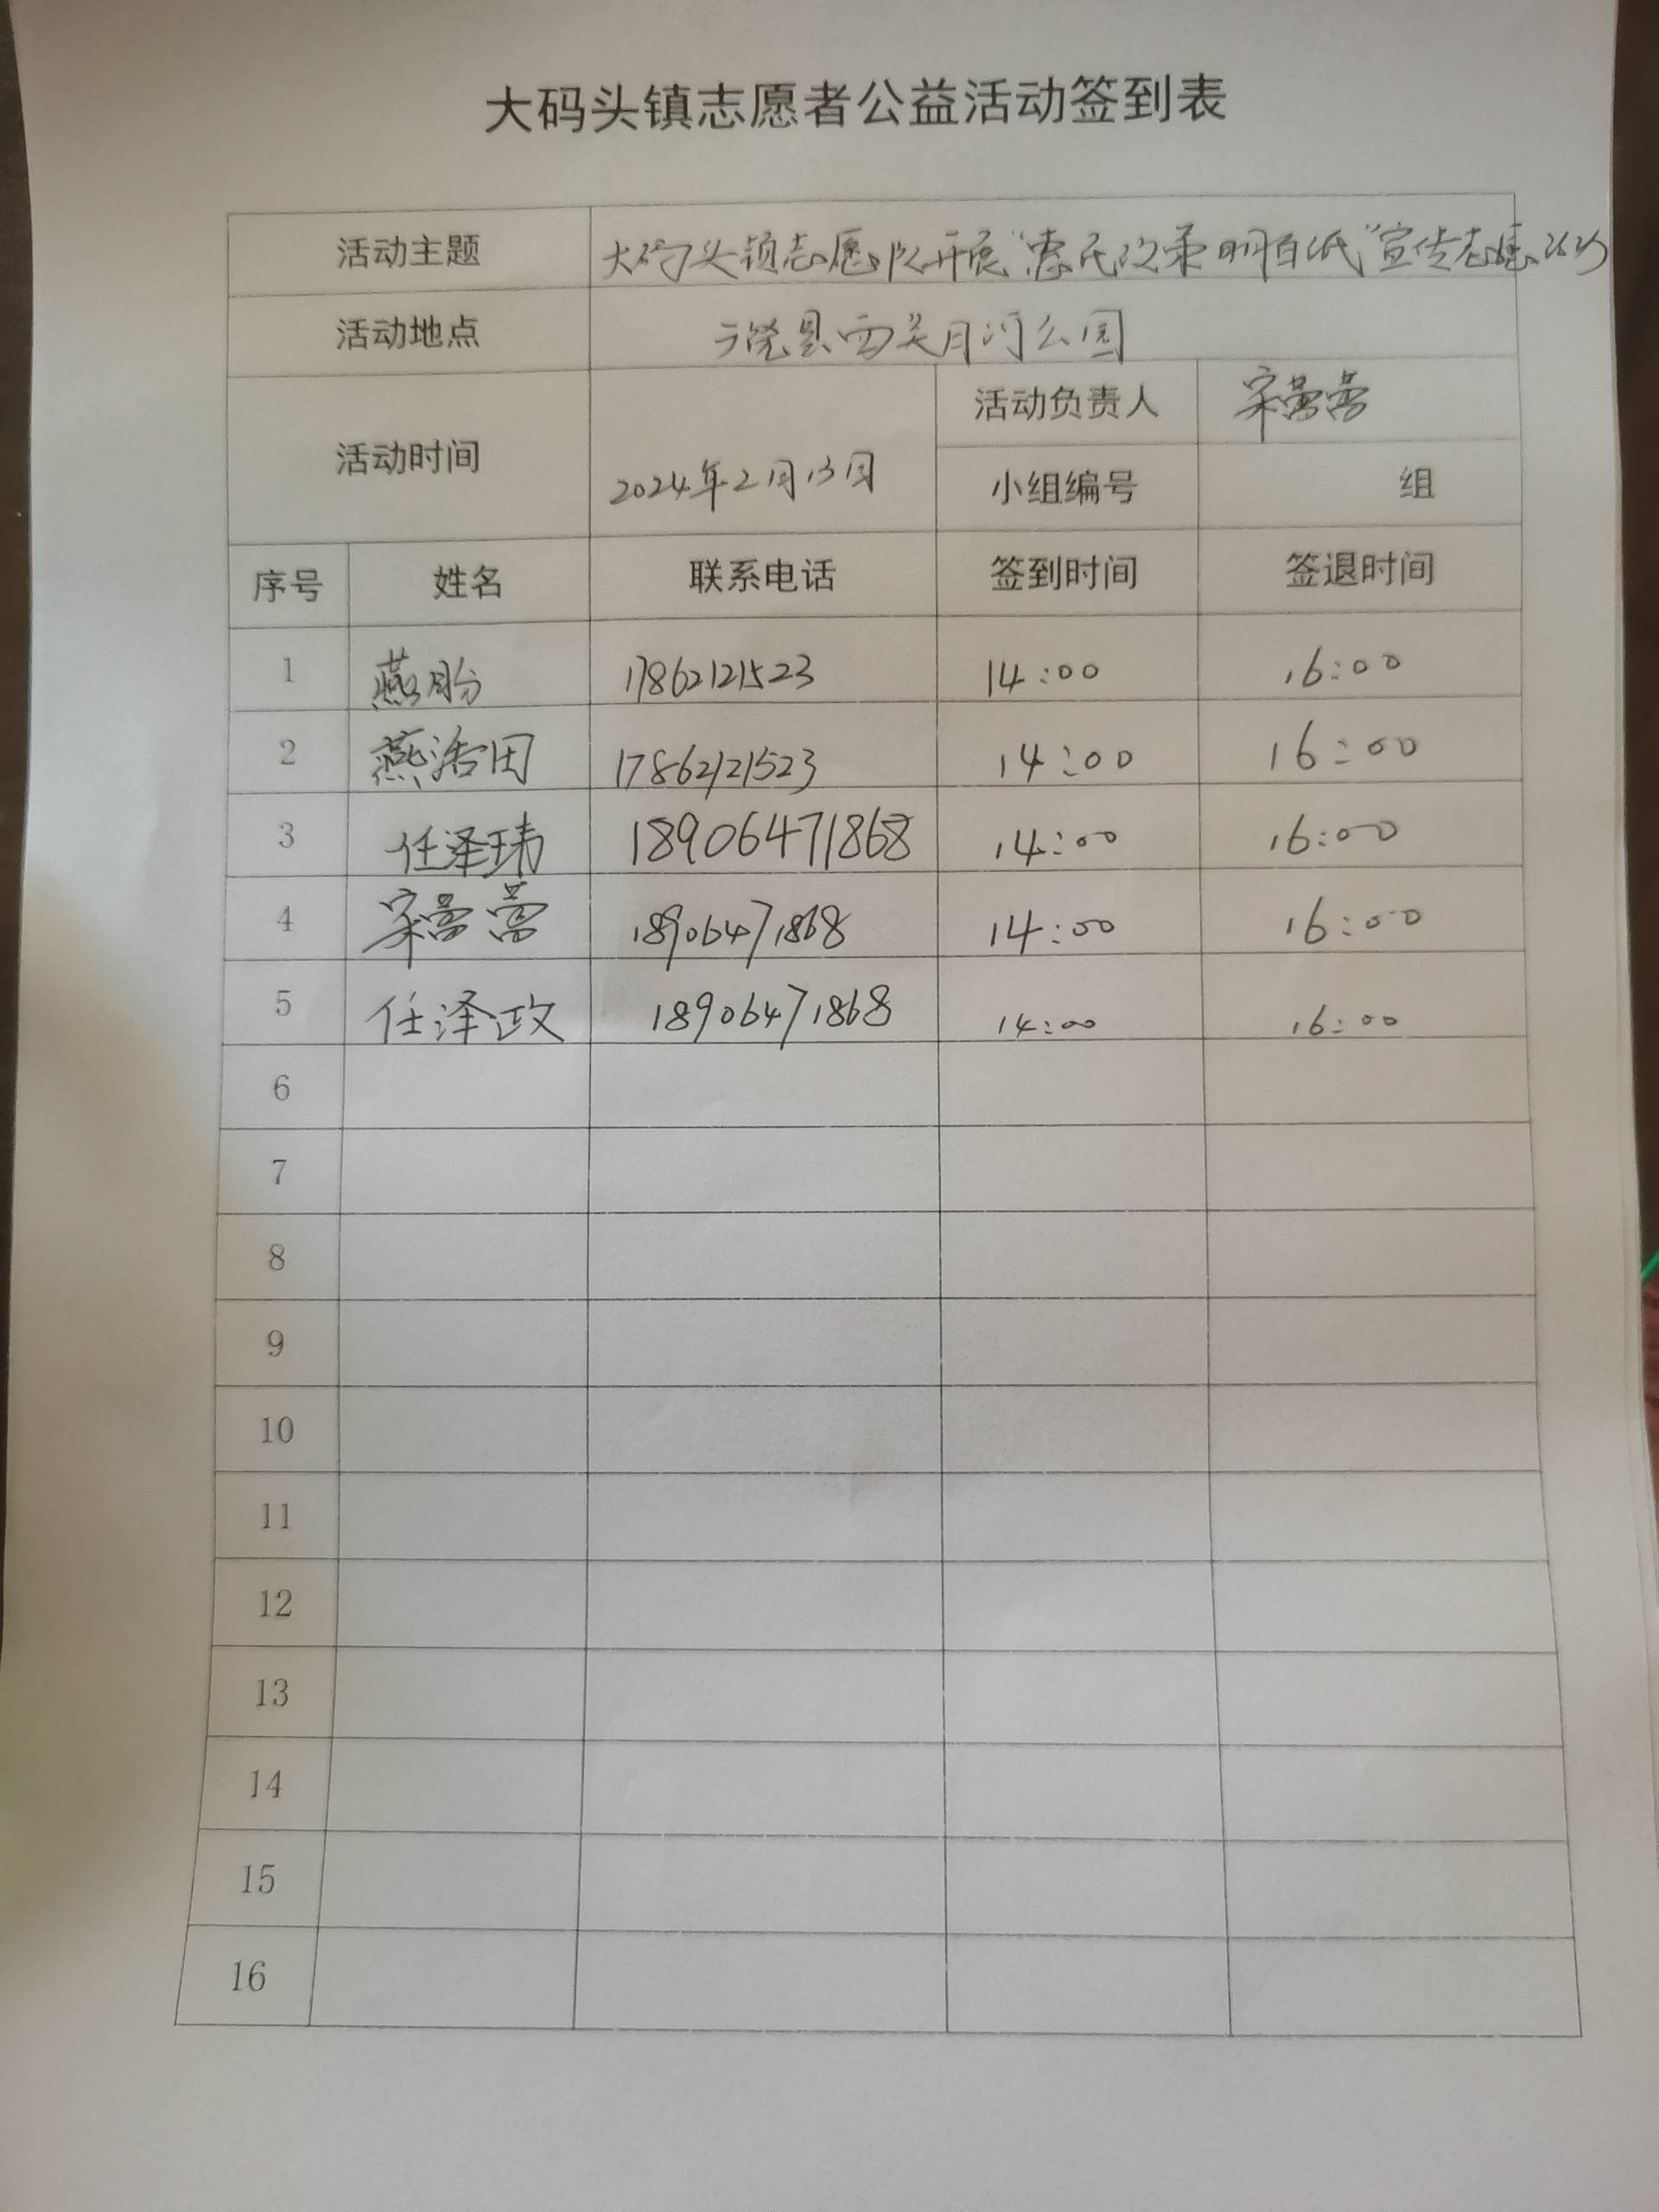 大码头镇志愿者公益活动签到表
活动主题 大码头镇志愿队开展“惠民政策明白纸”宣传志愿活动
活动地点 广饶县西关月河公园
活动时间 2024年2月13日 活动负责人 宋蒿蒿
小组编号 组
序号 姓名 联系电话 签到时间 签退时间
1 燕盼 17862121523 14:00 16:00
2 燕浩田 17862121523 14:00 16:00
3 任泽玮 18906471868 14:00 16:00
4 宋蒿蒿 18906471868 14:00 16:00
5 任泽政 18906471868 14:00 16:00
6
7
8
9
10
11
12
13
14
15
16